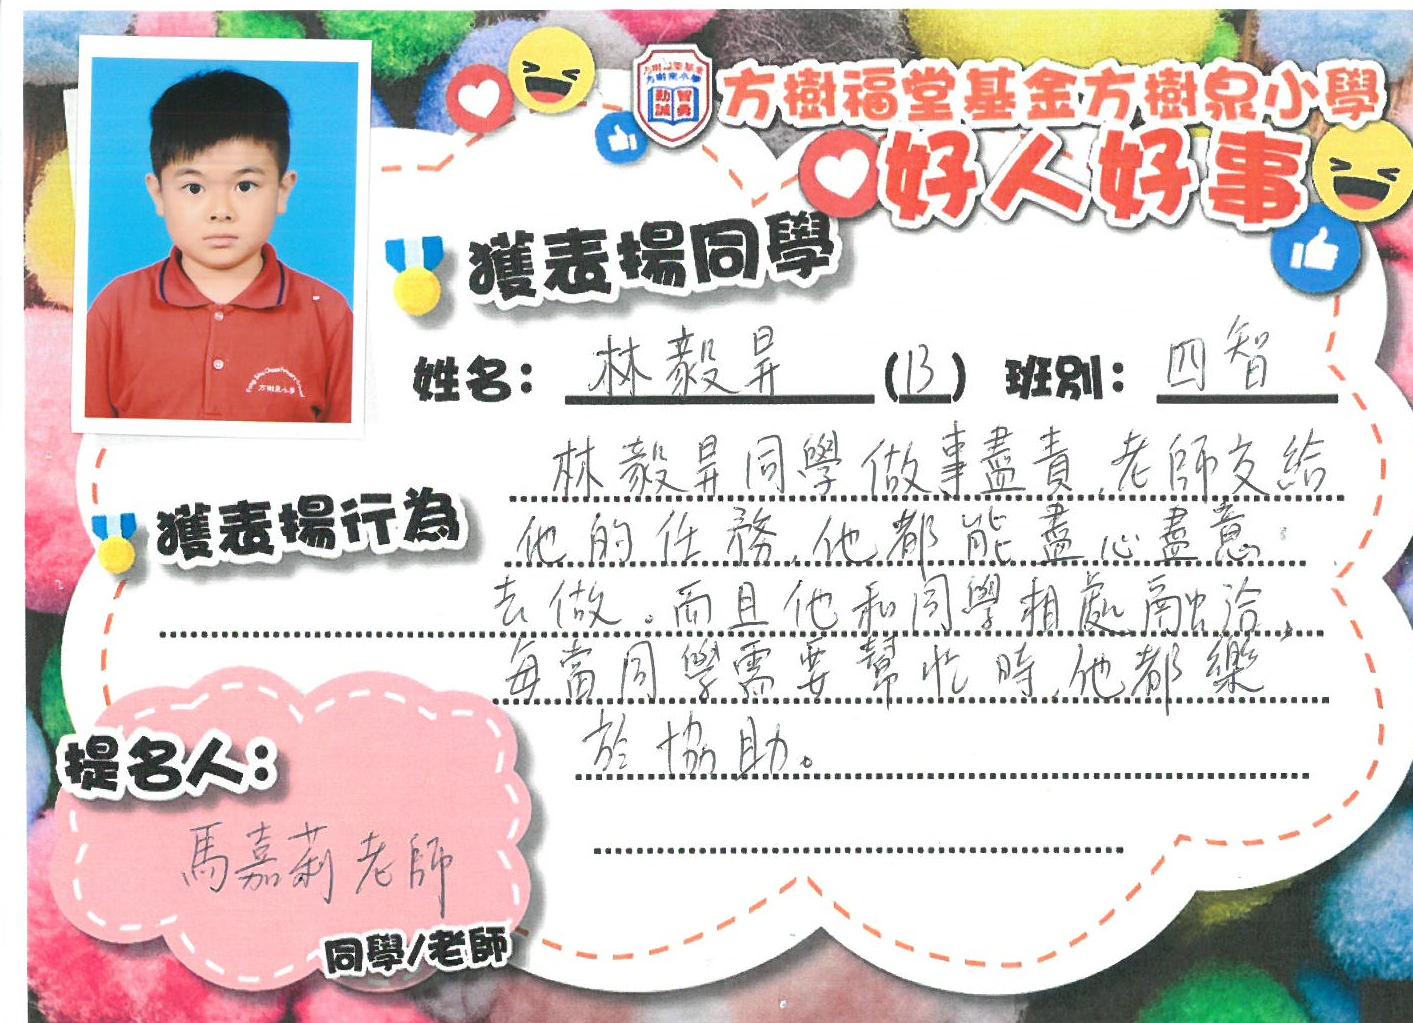 方樹福堂基金方樹泉小學
好人好事
獲表揚同學
姓名： 林毅昇 (13) 班別： 四智
獲表揚行為
林毅昇同學做事盡責，老師交給
他的任務，他都能盡心盡意
去做。而且他和同學相處融洽，
每當同學需要幫忙時，他都樂
於協助。
提名人：
馬嘉莉老師
同學/老師
方樹泉小學